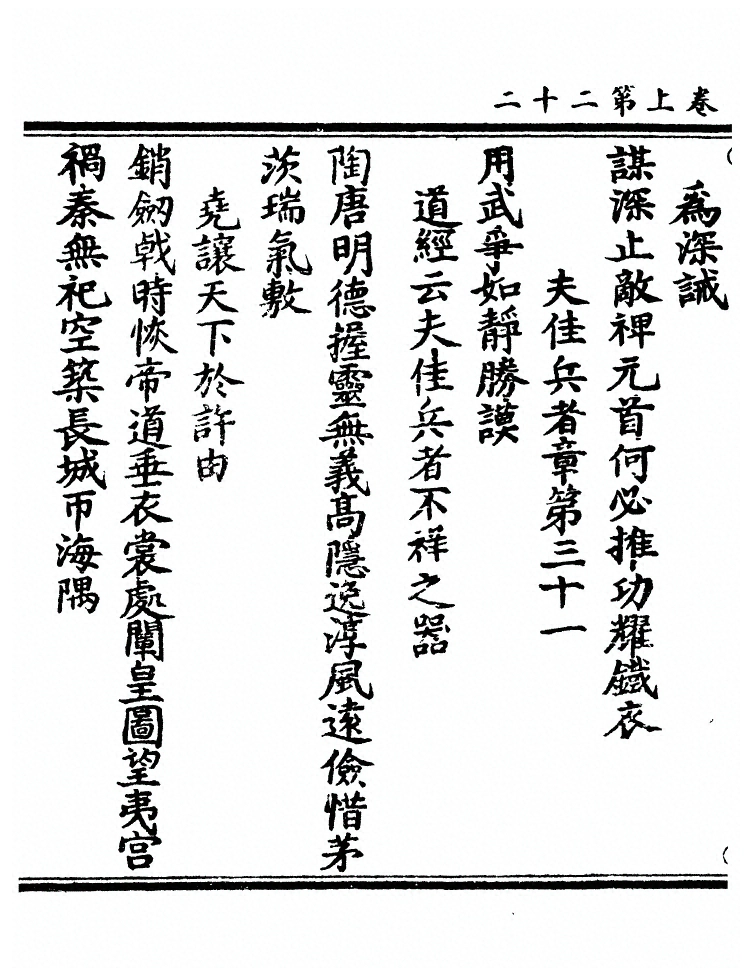 卷上第二十二
爲深誡
謀深止敵禆元首何必推功耀鐵衣
夫佳兵者章第三十一
用武爭如靜勝謨
道經云夫佳兵者不祥之器
陶唐明德握靈無義高隱逸淳風遠儉惜茅
茨瑞氣敷
堯讓天下於許由
銷劒戟時恢帝道垂衣裳處闡皇圖望夷宫
禍秦無祀空築長城帀海隅